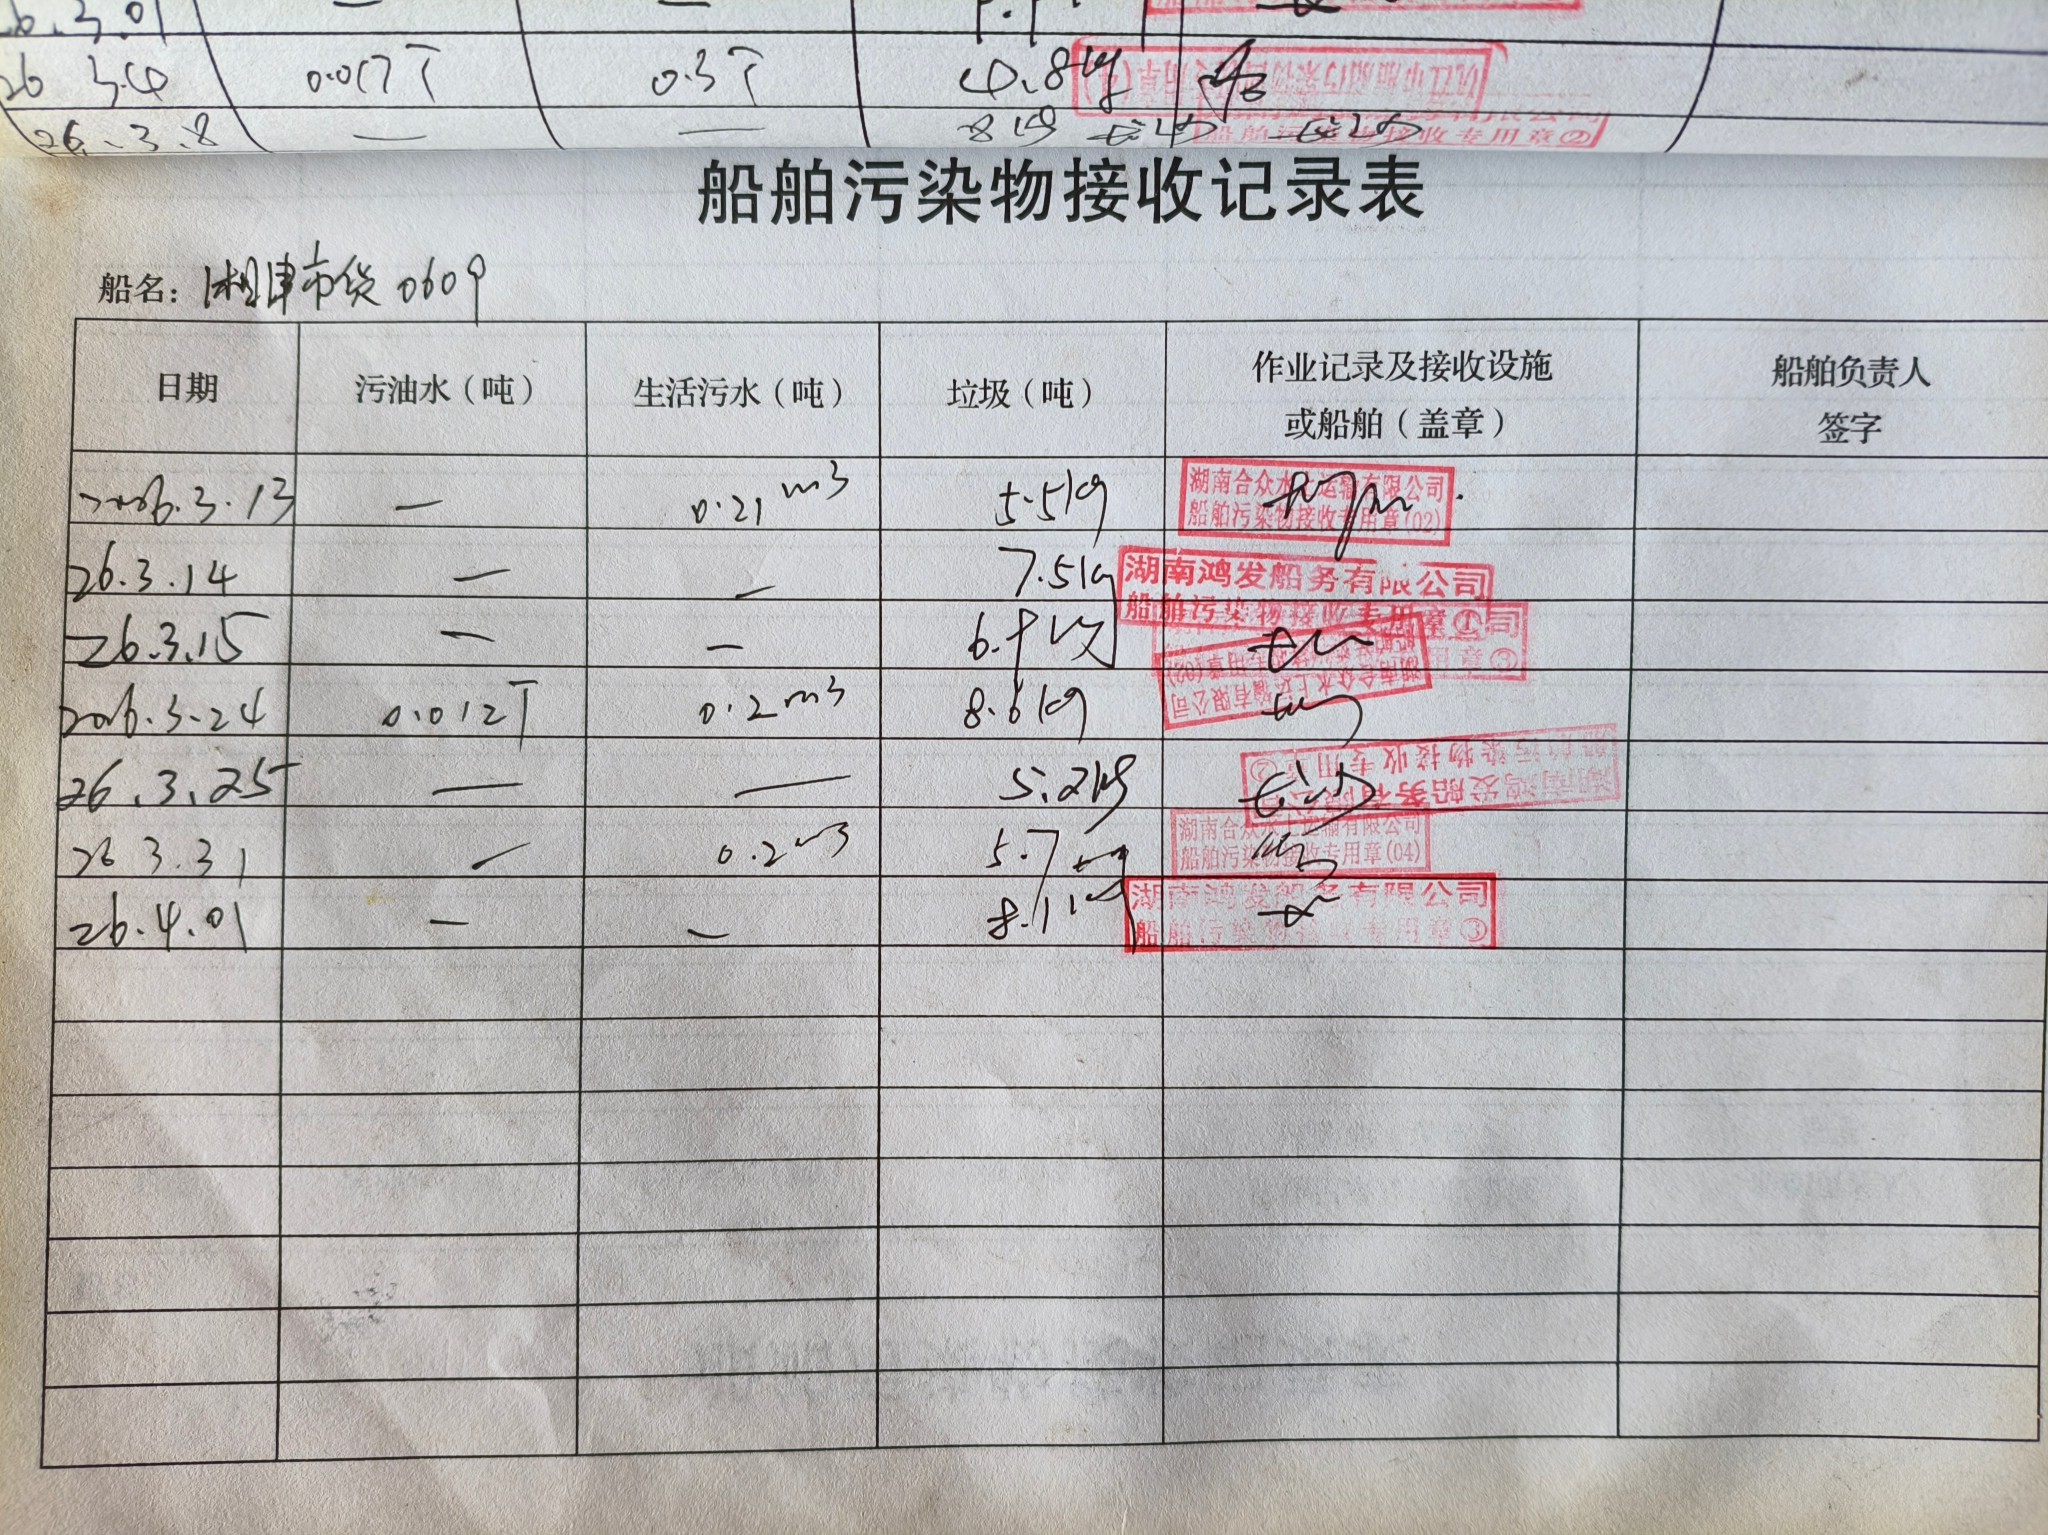 26.3.01 — —
26 3.4 0.017T 0.3T 4.8kg
26.3.8 — — 8kg
船舶污染物接收专用章②
船舶污染物接收记录表
船名：湘津市货0609
日期 污油水（吨） 生活污水（吨） 垃圾（吨） 作业记录及接收设施或船舶（盖章） 船舶负责人签字
2026.3.13 — 0.21m3 5.5kg 湖南合众水上运输有限公司 船舶污染物接收专用章(02)
26.3.14 — — 7.5kg 湖南鸿发船务有限公司 船舶污染物接收专用章①
26.3.15 — — 6.9kg
2026.3.24 0.012T 0.2m3 8.6kg 湖南合众水上运输有限公司 船舶污染物接收专用章(02)
26.3.25 — — 5.2kg 湖南鸿发船务有限公司 船舶污染物接收专用章②
26 3.31 — 0.2m3 5.7kg 湖南合众水上运输有限公司 船舶污染物接收专用章(04)
26.4.01 — — 8.1kg 湖南鸿发船务有限公司 船舶污染物接收专用章①